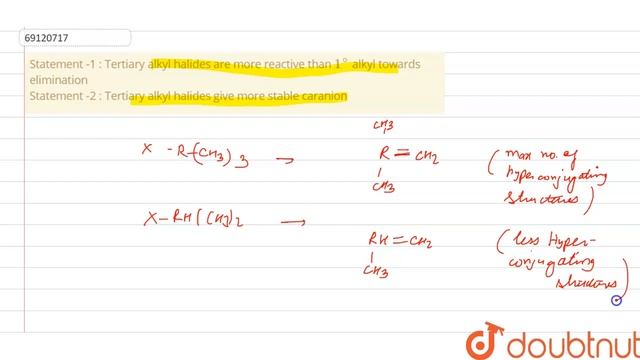 69120717
Statement -1 : Tertiary alkyl halides are more reactive than 1° alkyl towards
elimination
Statement -2 : Tertiary alkyl halides give more stable caranion
CH3
X - R-(CH3)3 → R = CH2 (max no. of
CH3 hyperconjugating
structures)
X-RH(CH3)2 → RH=CH2 (less Hyper-
CH3 conjugating
structures)
doubtnut